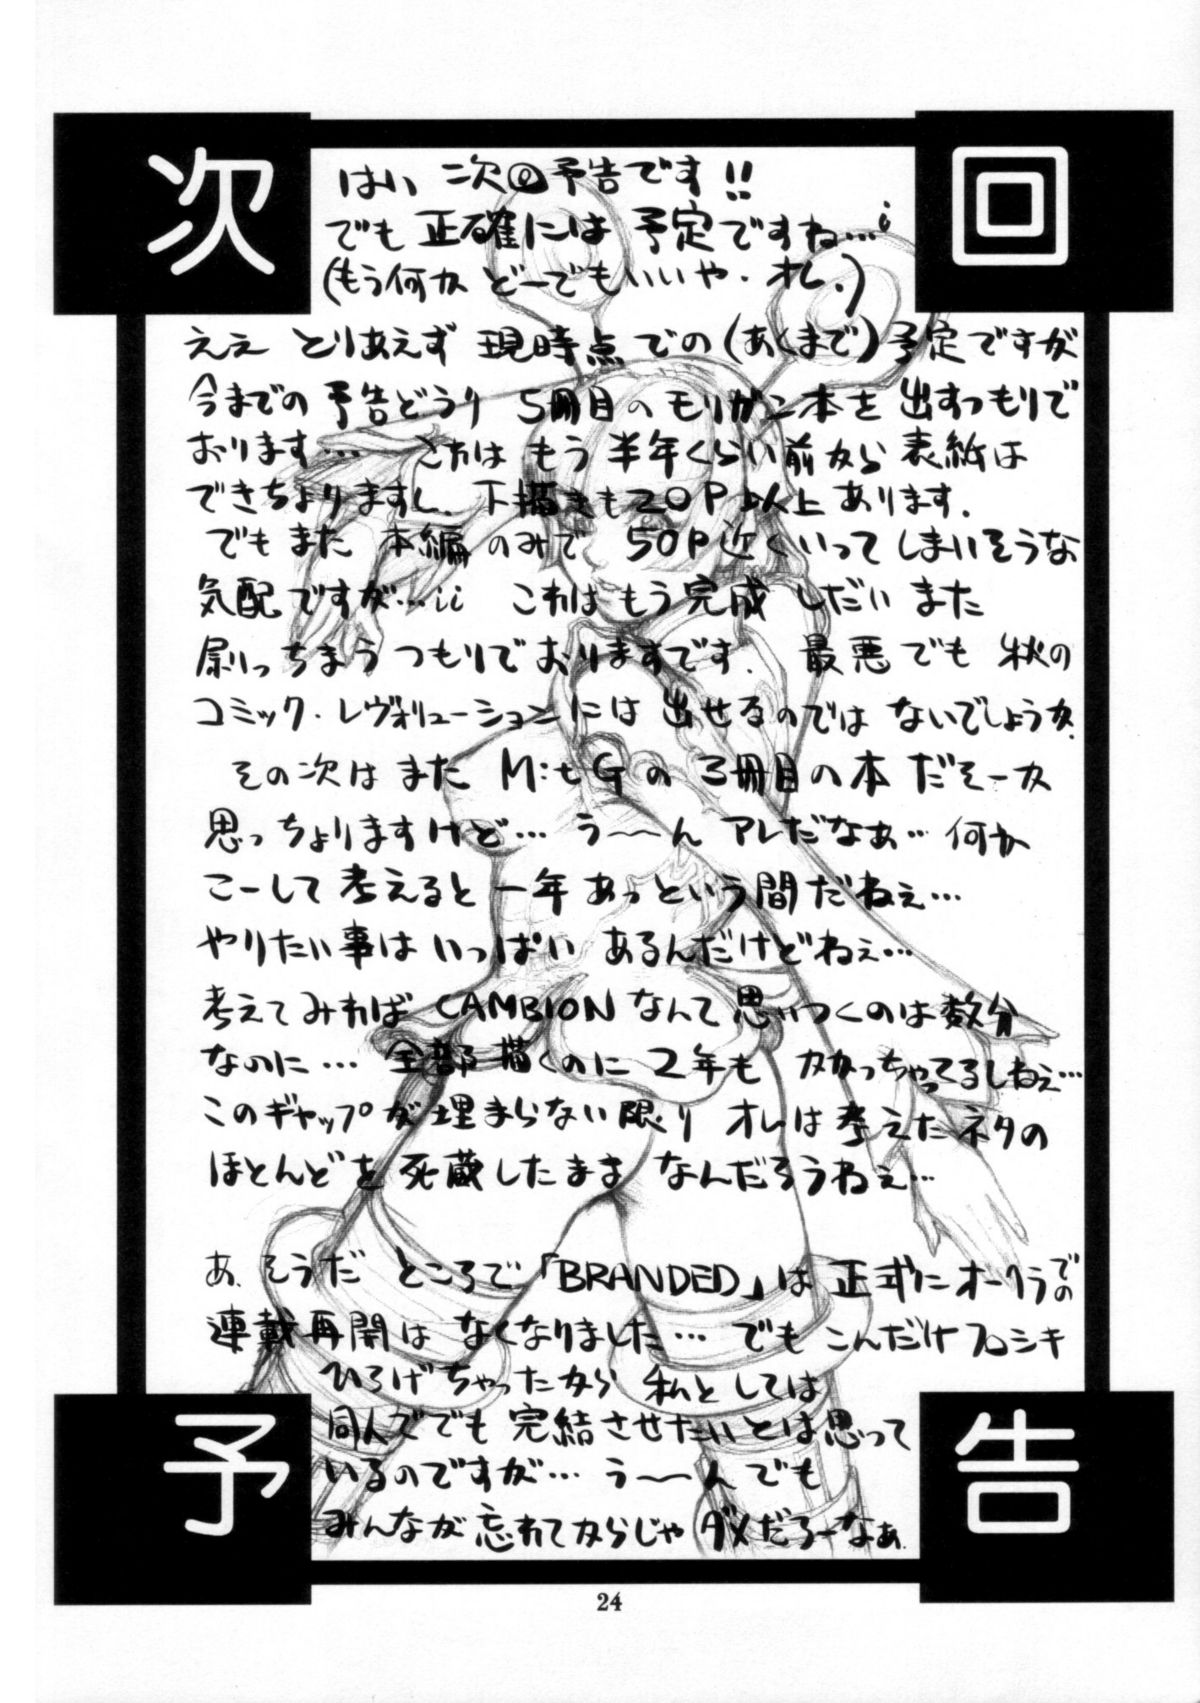 次回
はい 次回予告です!!
でも 正確には 予定ですね…;
(もう何か どーでもいいや・オレ.)
ええ とりあえず 現時点での(あくまで)予定ですが
今までの 予告どうり 5冊目のモリガン本を 出すつもりで
おります… これは もう 半年くらい前から 表紙は
できちょりますし、下描きも20P以上あります.
でもまた 本編のみで 50P近くいってしまいそうな
気配ですが…;; これは もう 完成 しだい また
刷っちまうつもりでおりますです. 最悪でも 秋の
コミック・レヴォリューションには 出せるのでは ないでしょうか.
その次は また M:tGの 3冊目の本 だそーか
思っちょりますけど… う〜〜ん アレだなぁ… 何か
こーして 考えると 一年 あっという間だねぇ…
やりたい事は いっぱい あるんだけどねぇ…
考えてみれば CAMBION なんて 思いつくのは 数分
なのに… 全部 描くのに 2年も かかっちゃってるしねぇ…
このギャップが 埋まらない限り オレは 考えたネタの
ほとんどを 死蔵したまま なんだろうねぇ…
あ、そうだ ところで「BRANDED」は 正式に オークラでの
連載再開は なくなりました… でも こんだけ フロシキ
ひろげちゃったから 私としては
同人ででも 完結させたいとは 思って
いるのですが… う〜〜んでも
みんなが 忘れてからじゃ ダメだろーなぁ.
予告
24